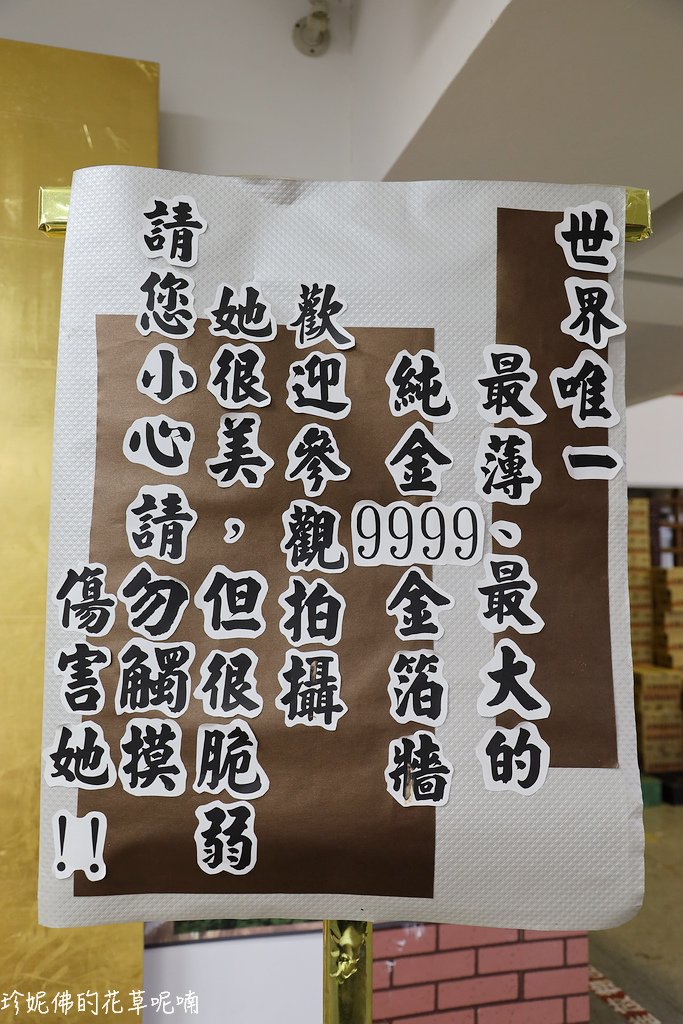 世界唯一
最薄、最大的
純金9999金箔牆
歡迎參觀拍攝
她很美，但很脆弱
請您小心請勿觸摸
傷害她!!
珍妮佛的花草呢喃